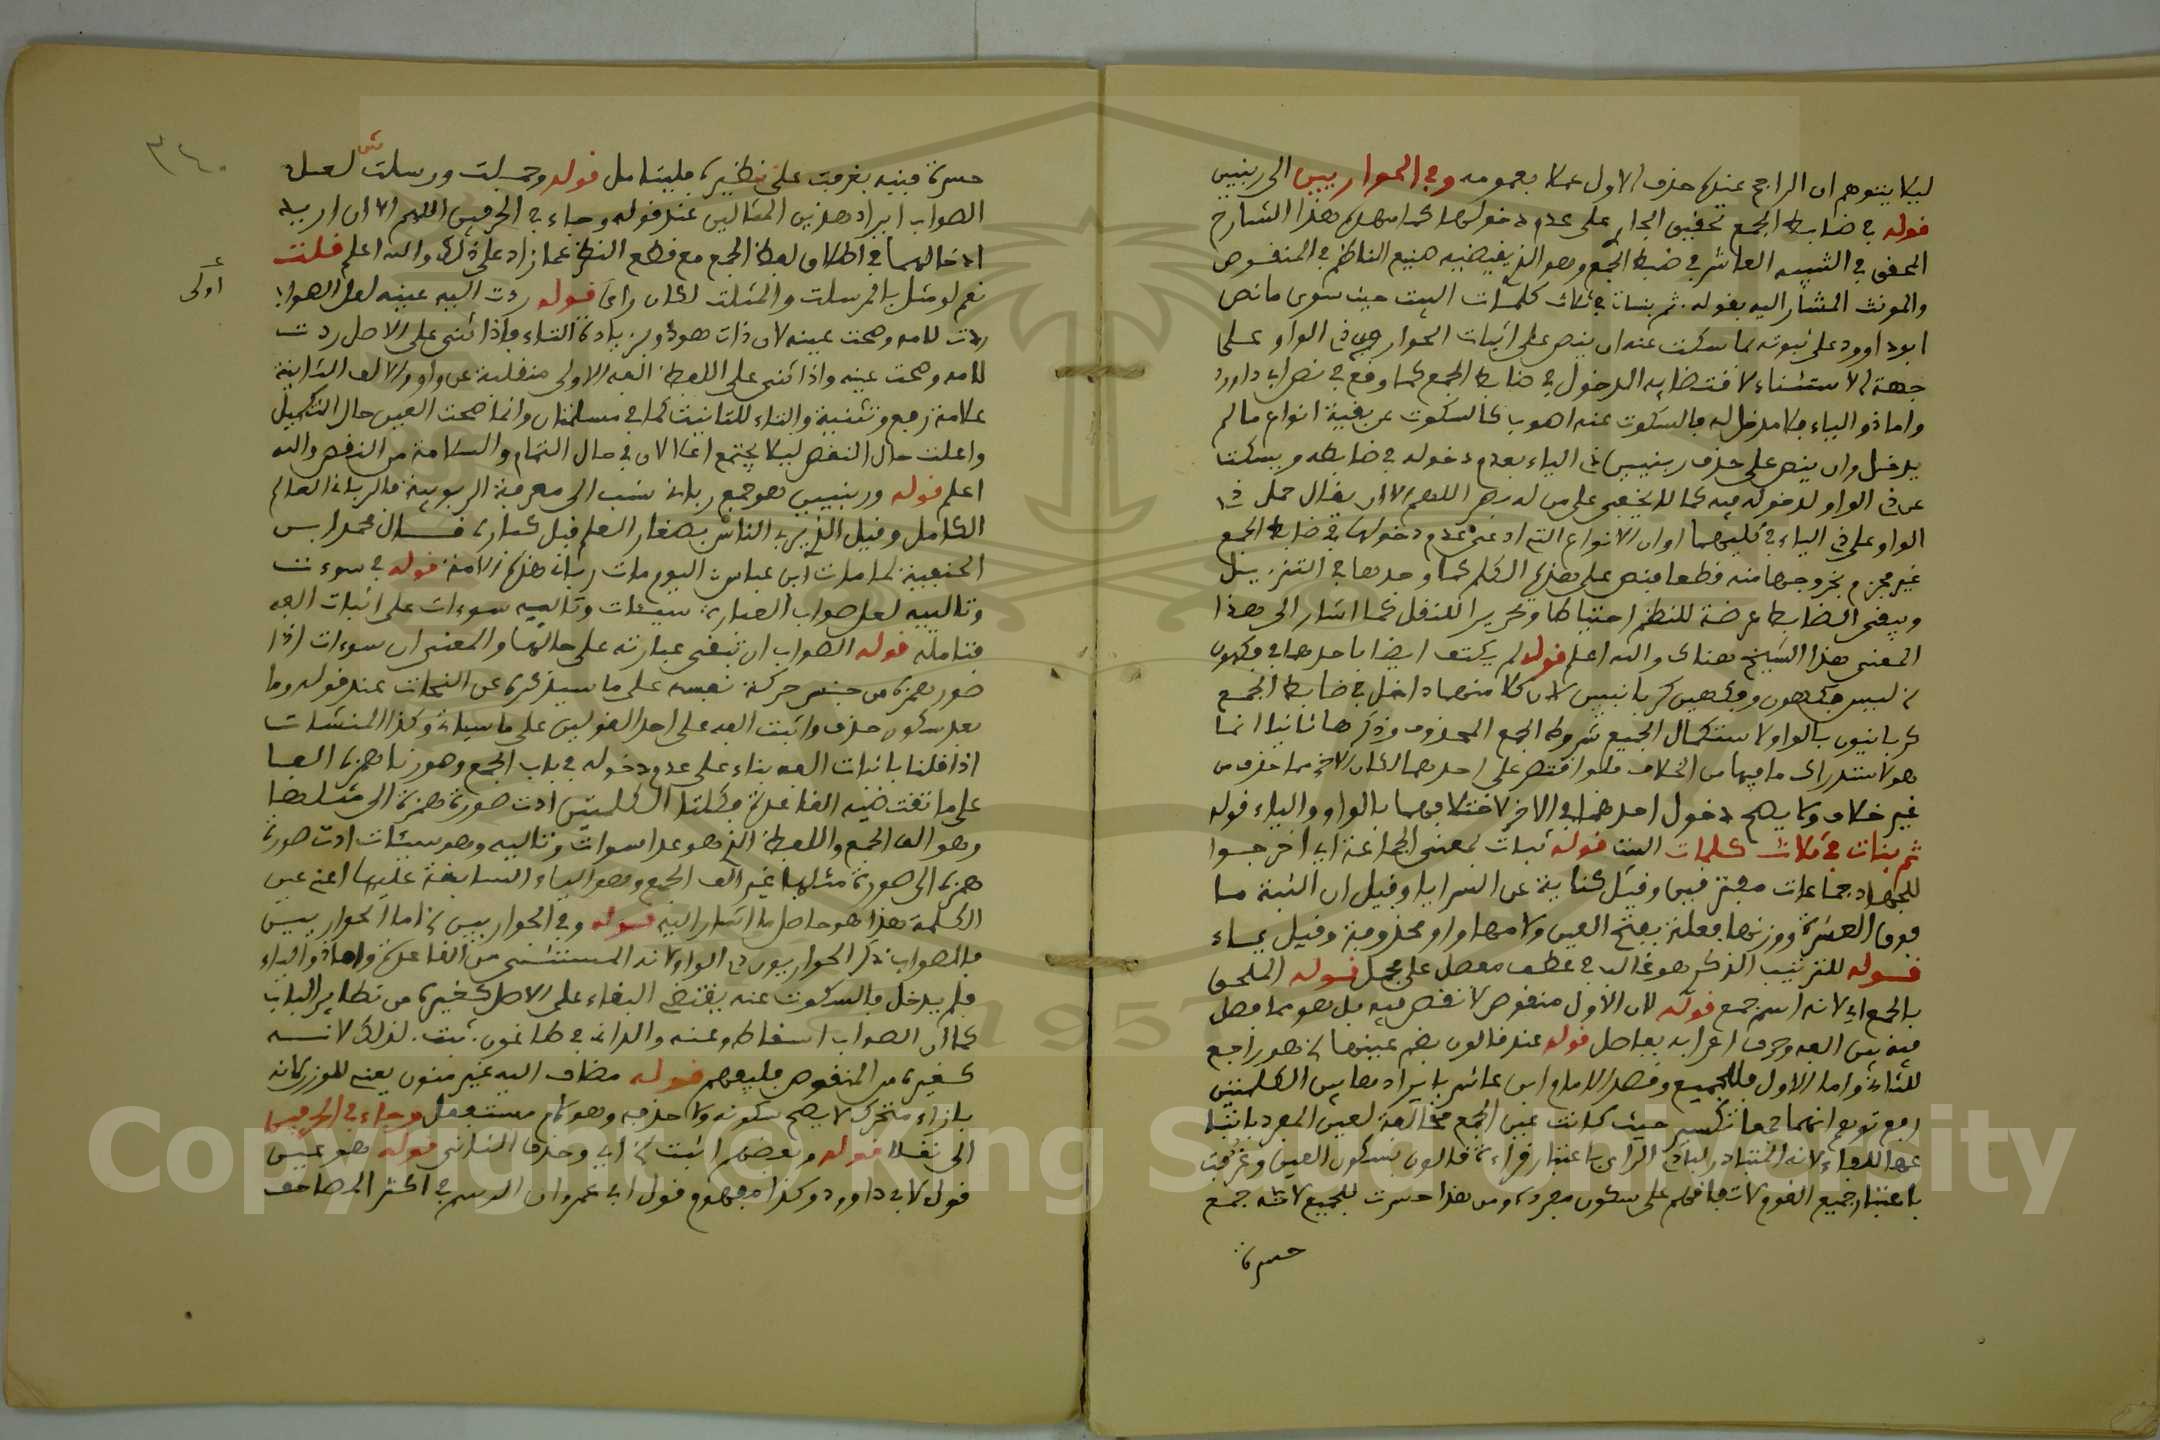 ليلا يتوهم ان الراجح عنده حذف الاول عملا بعمومه وفي الحواريين الى ربنيين
قوله في ضابط الجمع تحقيق الجار على عدم دخولها كما سهله هذا الشارح
المحقق في التنبيه العاشر في ضبط الجمع وهو الذي يقتضيه صنيع الناظم في المنقوص
والمونث المشار اليه بقوله ثم بنات في ثلاث كلمات البيت حيث سوى ما نص
ابو داوود على ثبوته بما سكت عنه ان ينص على اثبات الحواريون ذي الواو على
جهة الاستثناء لاقتضايه الدخول في ضابط الجمع كما وقع في نص ابي داوود
واما ذو الياء فلا مدخل له فالسكوت عنه اهون كالسكوت عن بقية انواع ما لم
يدخل وان ينص على حذف ربنيين ذي الياء بعدم دخوله في ضابطه ويسكت
عن ذي الواو لدخوله فيه كما لا يخفى على من له بصر اللهم الا ان يقال حمل ذي
الواو على ذي الياء في كليهما او ان الانواع التي ادعى عدم دخولها في ضابط الجمع
غير مجزوم بخروجها منه قطعا فنص على هذه الكلم كما وجدها في التنزيل
ويبقى الضابط عرضة للنظم احتياطا وتحريرا للنقل كما اشار الى هذا
المعنى هذا الشيخ هناك والله اعلم قوله لم يكتف ايضا باحدهما في فكهون
ليس فكهون وفكهين كربانيين لان كلا منهما داخل في ضابط الجمع
كربانيون بالواو لاستكمال الجميع شروط الجمع المحذوف وذكرها ثانيا انما
هو لاستدراك ما فيها من الخلاف فلو اقتصر على احدهما لكان الاخر مما حذف من
غير خلاف ولا يصح دخول احدهما في الاخر لاختلافهما بالواو والياء قوله
ثم بنات في ثلاث كلمات البيت قوله ثبات بمعنى الجماعة اي اخرجوا
للجهاد جماعات مفترقين وقيل كناية عن السرايا وقيل ان الثبة ما
فوق العشرة ووزنها فعلة بفتح العين ولامها واو محذوفة وقيل ياء
قوله للترتيب الذكر هو غالب في عطف مفصل على مجمل قوله الملحق
بالجمع اي لانه اسم جمع قوله لان الاول منقوص لا نقص فيه بل هو مما فصل
فيه بين الفه وحرف اعرابه بفاصل قوله عند قالون بضم عينها هو راجع
للثاني واما الاول فللجميع وقصد الامام ابن عاشر بايراد هاتين الكلمتين
رفع توهم انهما جمعا تكسير حيث كانت عين الجمع مخالفة لعين المفرد باتبا
عها للفاء لانه المتبادر لبادئ الراي باعتبار قراءة قالون بسكون العين وغرفت
باعتبار جميع القروء لاتفاقهم على سكون مفرده ومن هذا حسرت للجميع لانه جمع
حسرة
حسرة فنبه بغرفت على نظيره فليتامل قوله وجملت ورسلت لعل
الصواب ايراد هذين المثالين عند قوله وجاء في الحرفين اللهم الا ان اريد
ادخالهما في اطلاق لفظ الجمع مع قطع النظر عما زاد على ذلك والله اعلم قلت
نعم لو مثل بالمرسلت والمثلت لكان رايا قوله ردت اليه عينه لعل الصواب
اولى
ردت لامه وصحت عينه لان ذات هو ذو بزيادة التاء فاذا ثني على الاصل ردت
لامه وصحت عينه واذا ثني على اللفظ الفه الاولى منقلبة عن واو والالف الثانية
علامة رفع وتثنية والتاء للتانيث كما في مسلمتان وانما صحت العين حال التكميل
واعلت حال النقص ليلا يجتمع اعلالان في حال التمام والسلامة من النقص والله
اعلم قوله وربنيين هو جمع رباني نسب الى معرفة الربوبية فالرباني العالم
الكامل وقيل الذي يربي الناس بصغار العلم قبل كباره قال محمد ابن
الحنفية لما مات ابن عباس اليوم مات رباني هذه الامة قوله في سوءت
وتالييه لعل صواب العبارة سيئات وتالييه سوءات على اثبات الفه
فتامله قوله الصواب ان تبقى عبارته على حالها والمعنى ان سوءات اذا
صور همزه من جنس حركة نفسه على ما سيذكره عن النحات عند قوله وما
بعد سكون حذف واثبت الفه على احد القولين على ما سياتي وكذا المنشئات
اذا قلنا باثبات الفه بناء على عدم دخوله في باب الجمع وصورنا همزه الفا
على ما تقتضيه القاعدة فكلتا الكلمتين ادت صورة همزة الى مثلها
وهو الف الجمع واللفظ الذي هو عدا سوات وتالييه وهو سيئات ادت صورة
همزه الى صورة مثلها غير الف الجمع وهو الياء السابقة عليها اعني عين
الكلمة هذا هو حاصل ما اشار اليه قوله وفي الحواريين اما الحواريين
فالصواب ذكر الحواريون ذي الواو لانه المستثنى من القاعدة واما ذو الياء
فلم يدخل فالسكوت عنه يقتضي البقاء على الاصل كغيره من نظاير الباب
كما ان الصواب اسقاط وعنه والداني في طاغون ثبت لذلك لانه
كغيره من المنقوص فليفهم قوله مضاف اليه غير منون يعني للوزن لانه
بازاء متحرك لا يصح سكونه ولا حذفه وهو لام مستفعل وجاء في الحرفين
الى نقلا قوله وبعضهم اثبت اي وحذف الثاني قوله هو عين
قول لابي داوود وكذا مفهوم قول ابي عمرو ان الرسم في اكثر المصاحف
Copyright © King Saud University
1957